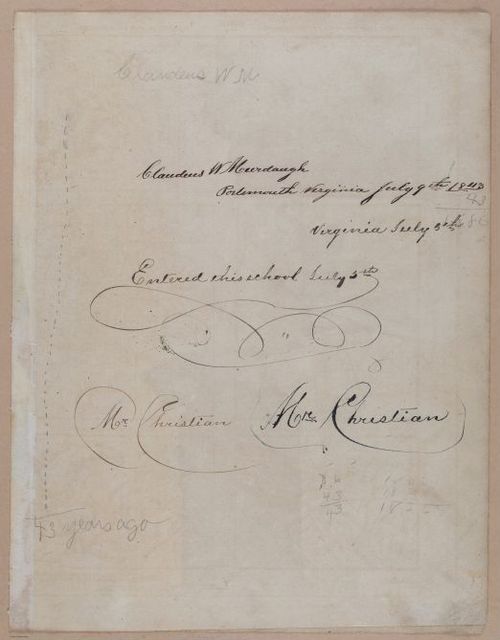 Claudeus W M
Claudeus W Murdaugh
Portsmouth Virginia July 9th 1843
43
Virginia July 5th 86
Entered this school July 5th
Mr Christian Mr. Christian
86
43
43
43 years ago